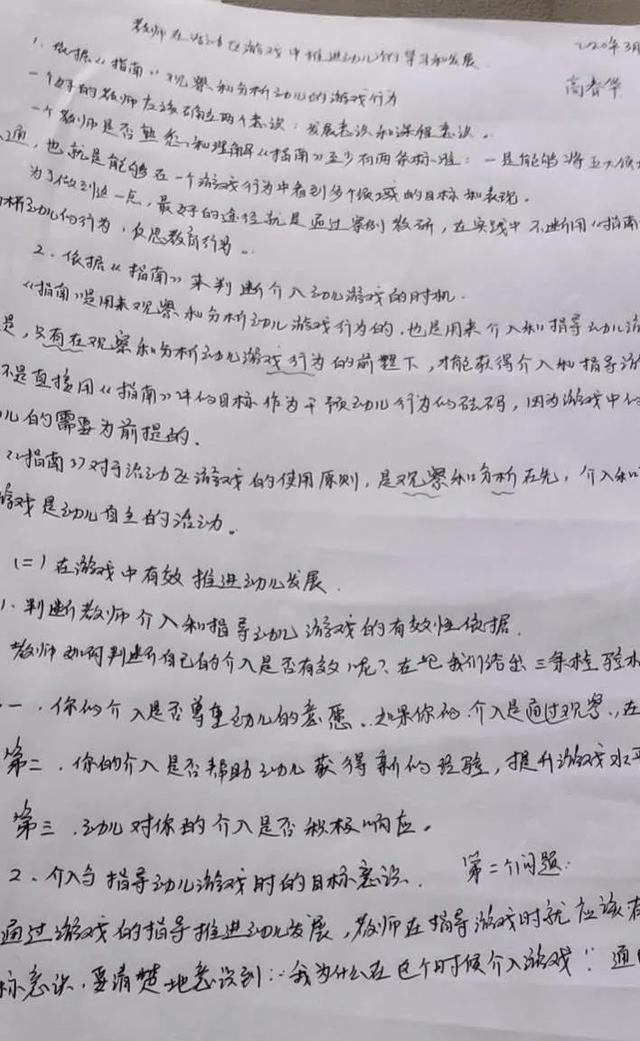 教师在活动区游戏中推进幼儿的学习和发展
2020年3月
高春华
1、依据《指南》观察和分析幼儿的游戏行为
一个好的教师应该确立两个意识：发展意识和课程意识。
一个教师是否熟悉和理解《指南》至少有两条标准：一是能够将五大领
通，也就是能够在一个游戏行为中看到多个领域的目标和表现。
为了做到这一点，最好的途径就是通过案例教研，在实践中不断用《指南
析幼儿的行为，反思教育行为。
2、依据《指南》来判断介入幼儿游戏的时机.
《指南》是用来观察和分析幼儿游戏行为的，也是用来介入和指导幼儿游
是，只有在观察和分析幼儿游戏行为的前提下，才能获得介入和指导游
不是直接用《指南》中的目标作为干预幼儿行为的砝码，因为游戏中的
儿的需要为前提的。
《指南》对于活动区游戏的使用原则，是观察和分析在先，介入和
游戏是幼儿自主的活动。
(二)在游戏中有效推进幼儿发展.
1、判断教师介入和指导幼儿游戏的有效性依据.
教师如何判断自己的介入是否有效呢？在此我们给出三条检验标
一、你的介入是否尊重幼儿的意愿.如果你的介入是通过观察,在
第二.你的介入是否帮助幼儿获得新的经验，提升游戏水平
第三.幼儿对你的介入是否积极响应。
2、介入与指导幼儿游戏时的目标意识. 第二个问题.
通过游戏的指导推进幼儿发展,教师在指导游戏时就应该有
标意识.要清楚地意识到:我为什么在这个时候介入游戏 通